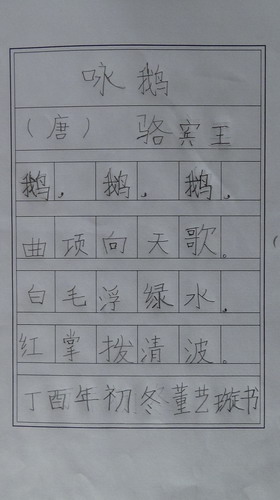 咏鹅
（唐）　骆宾王
鹅，鹅，鹅，
曲项向天歌。
白毛浮绿水，
红掌拨清波。
丁酉年初冬董艺璇书